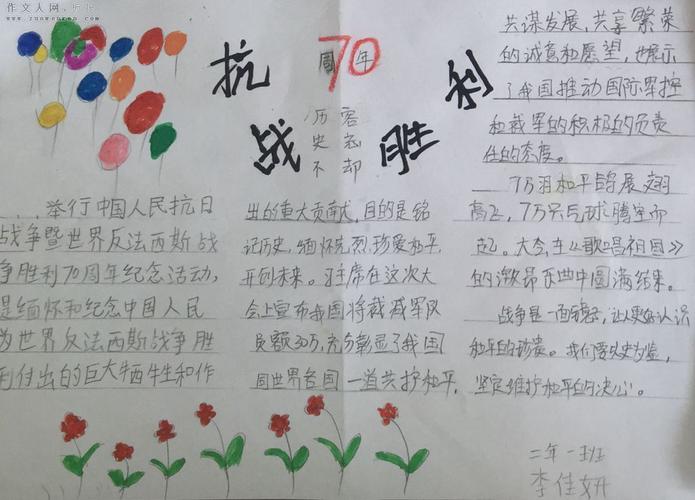 作文人网
www.zuowenren.com
抗
周70年
战胜利
历史不却
容忘
举行中国人民抗日
战争暨世界反法西斯战
争胜利70周年纪念活动,
是缅怀和纪念中国人民
为世界反法西斯战争胜
利付出的巨大牺牲和作
出的重大贡献,目的是铭
记历史,缅怀先烈,珍爱和平,
开创未来。习主席在这次大
会上宣布我国将裁减军队
员额30万,充分彰显了我国
同世界各国一道共护和平,
共谋发展,共享繁荣
的诚意和愿望,也展示
了我国推动国际军控
和裁军的积极的负责
任的态度。
7万羽和平鸽展翅
高飞,7万只气球腾空而
起。大会在《歌唱祖国》
的激昂乐曲中圆满结束。
战争是一面镜子,让人更好认识
和平的珍贵。我们要以史为鉴,
坚定维护和平的决心。
二年一班
李佳妍